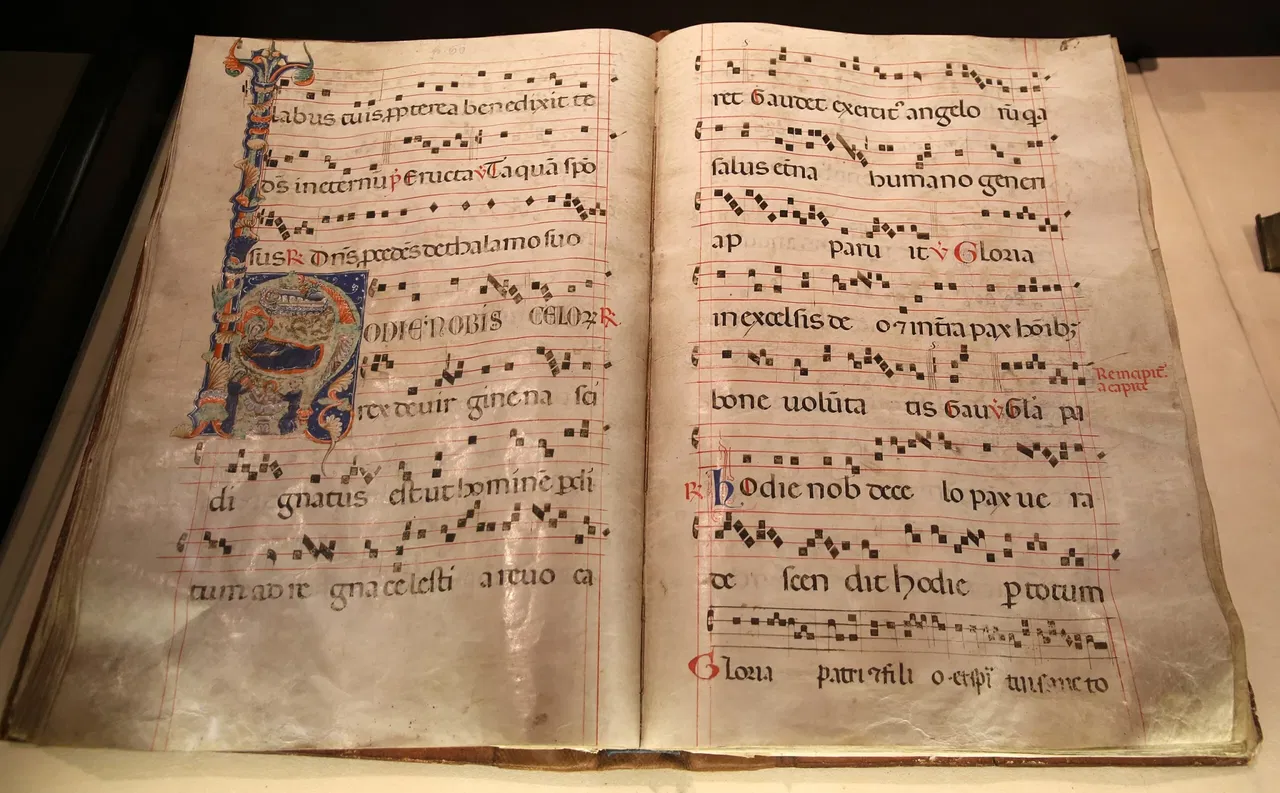 labus tuis ꝓpterea benedixit te
ds̄ in eternū p̄ Eructa v̄ Taquā spō
sus R Dn̄s ꝓcedēs de thalamo suo
HODIE NOBIS CELOꝜ R
rex de vir gine na sci
di gnatus est ut hominē ꝑdi
tum ad re gna celesti a reuo ca
ret Gaudet exercit᾽ angelo rū q̄a
salus et̄na humano generi
ap paru it v̄ Gloria
in excelsis de o ⁊ in t̄ra pax hōibꝫ
bone uolūta tis Gau v̄ Gl̄a pa
Reincipit᾽
a capite
R hOdie nob dece lo pax ue ra
de scen dit hodie ꝑ totum
Gloria patri ⁊ fili o et sp̄i tui sancto